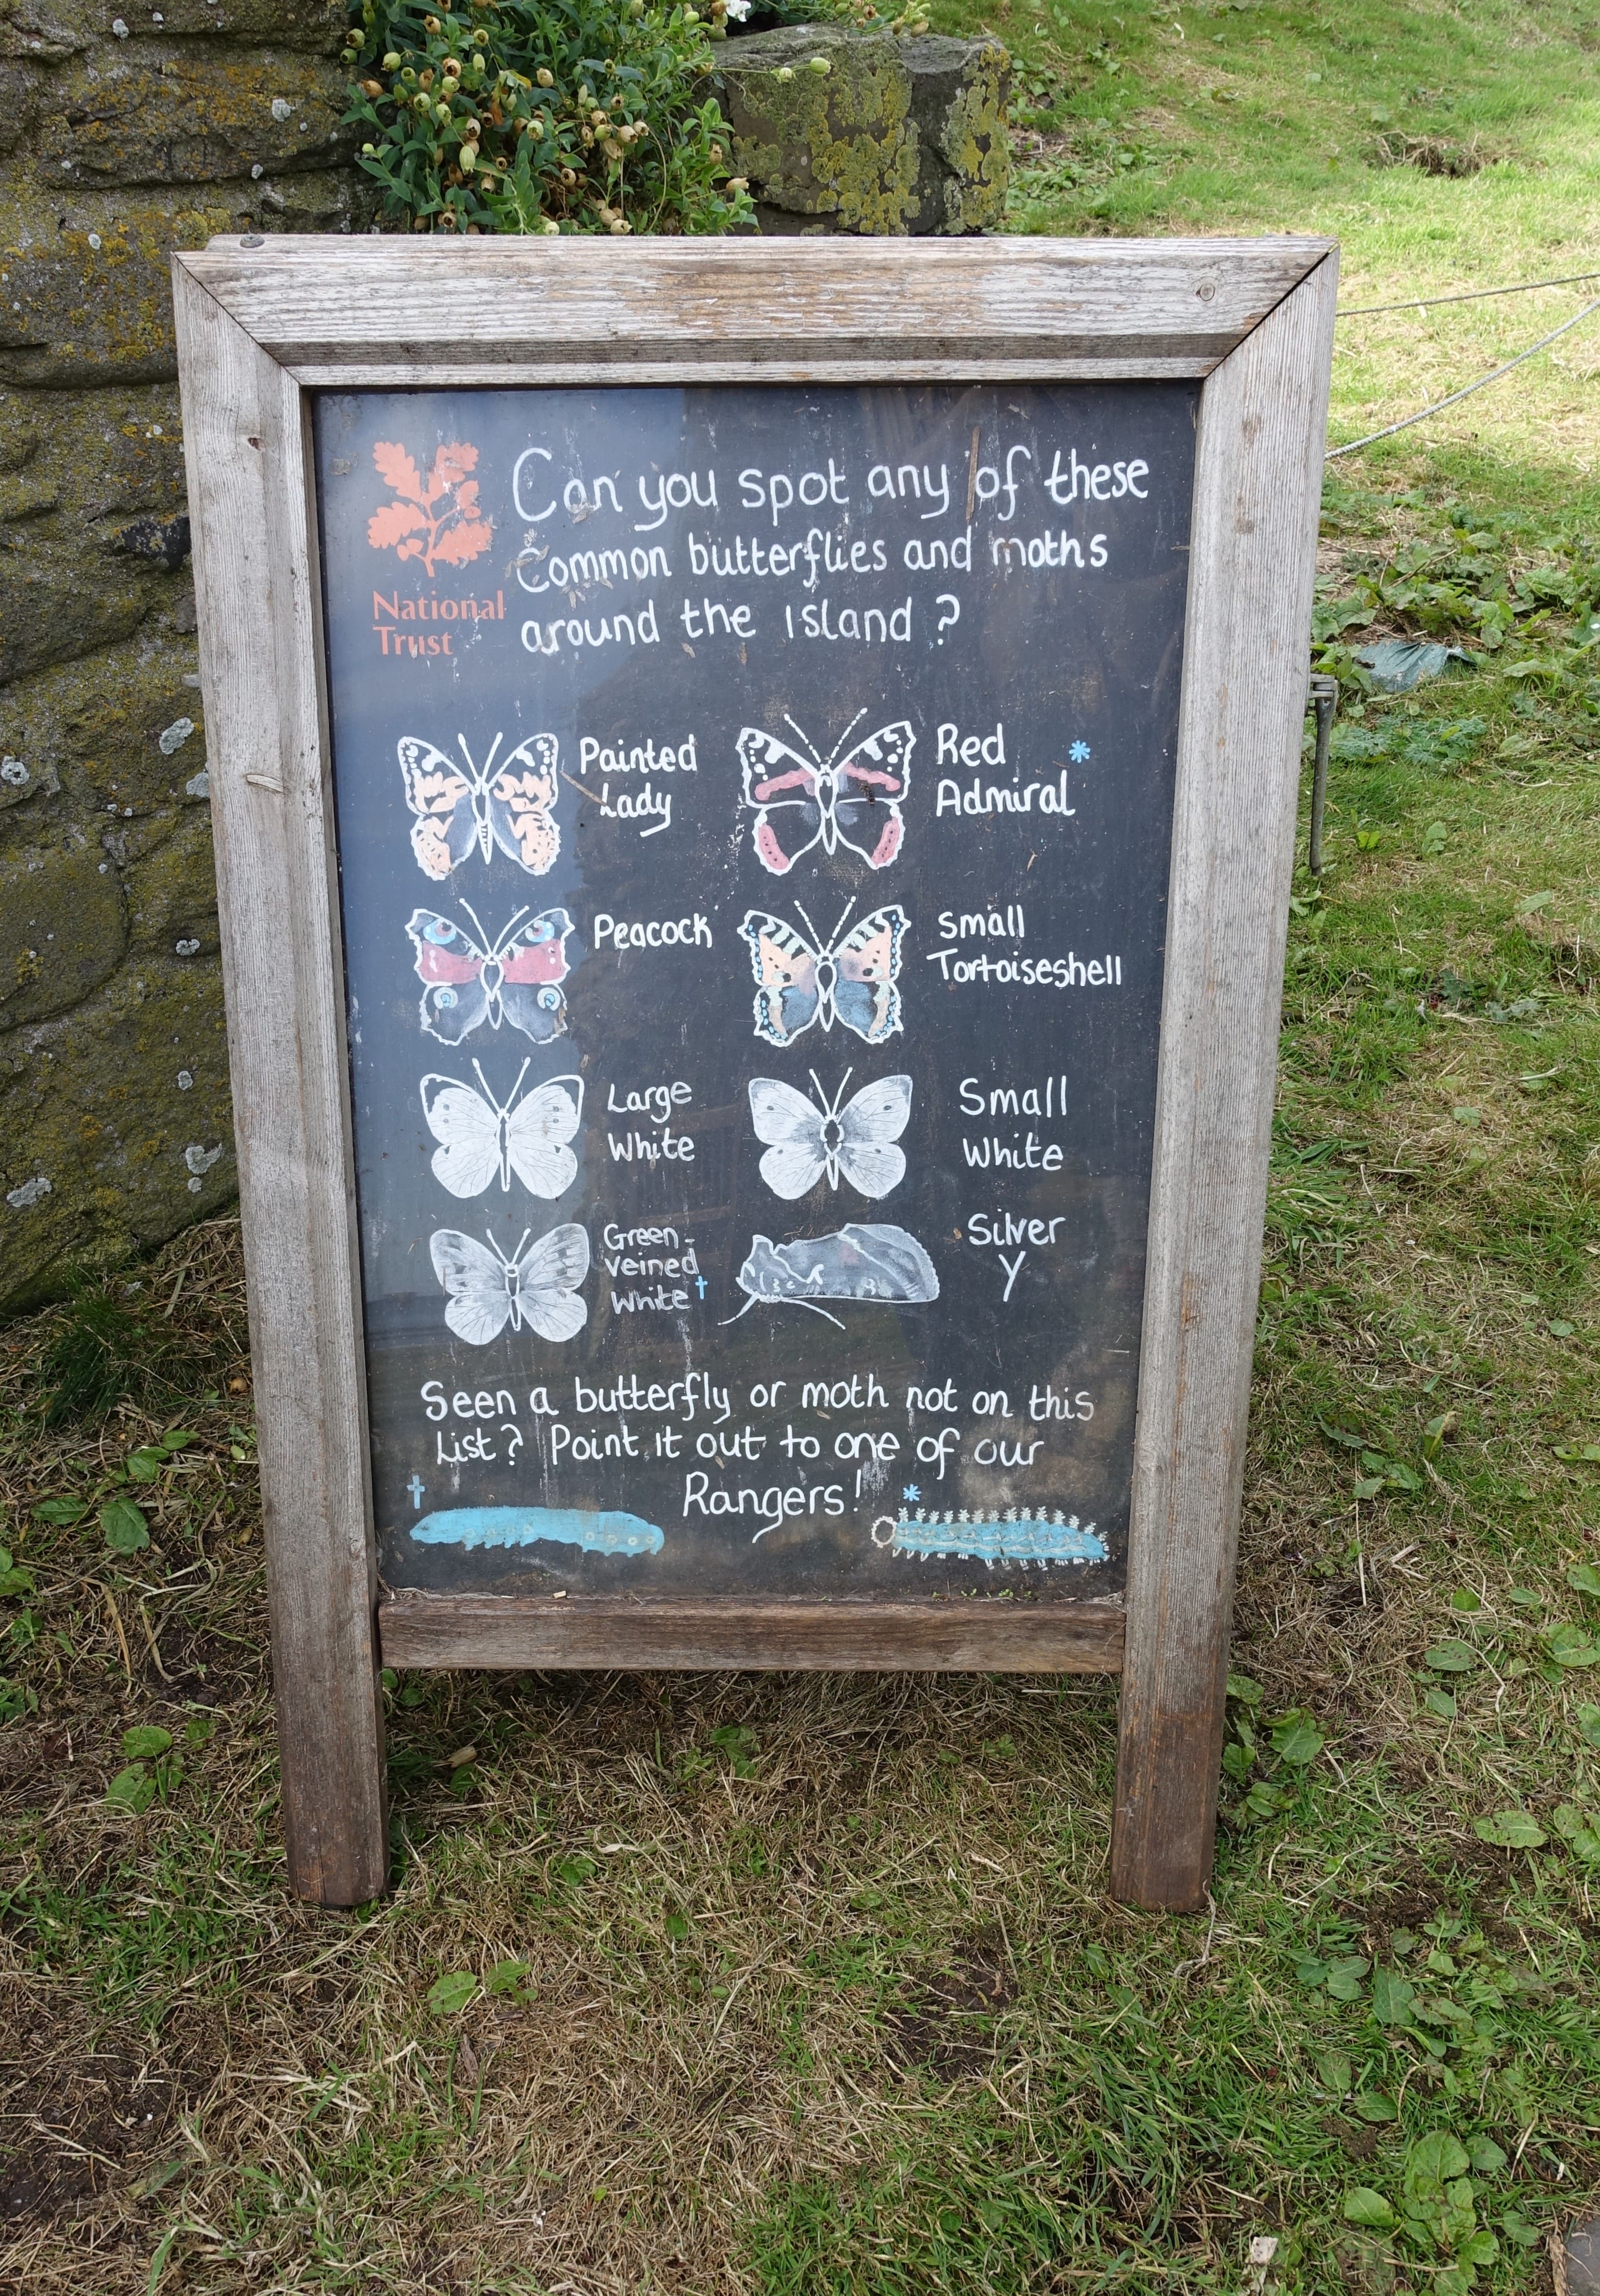 National
Trust
Can you spot any of these
common butterflies and moths
around the island?
Painted
Lady
Red *
Admiral
Peacock
Small
Tortoiseshell
Large
White
Small
White
Green-
veined
White †
Silver
Y
Seen a butterfly or moth not on this
List? Point it out to one of our
Rangers!
† *